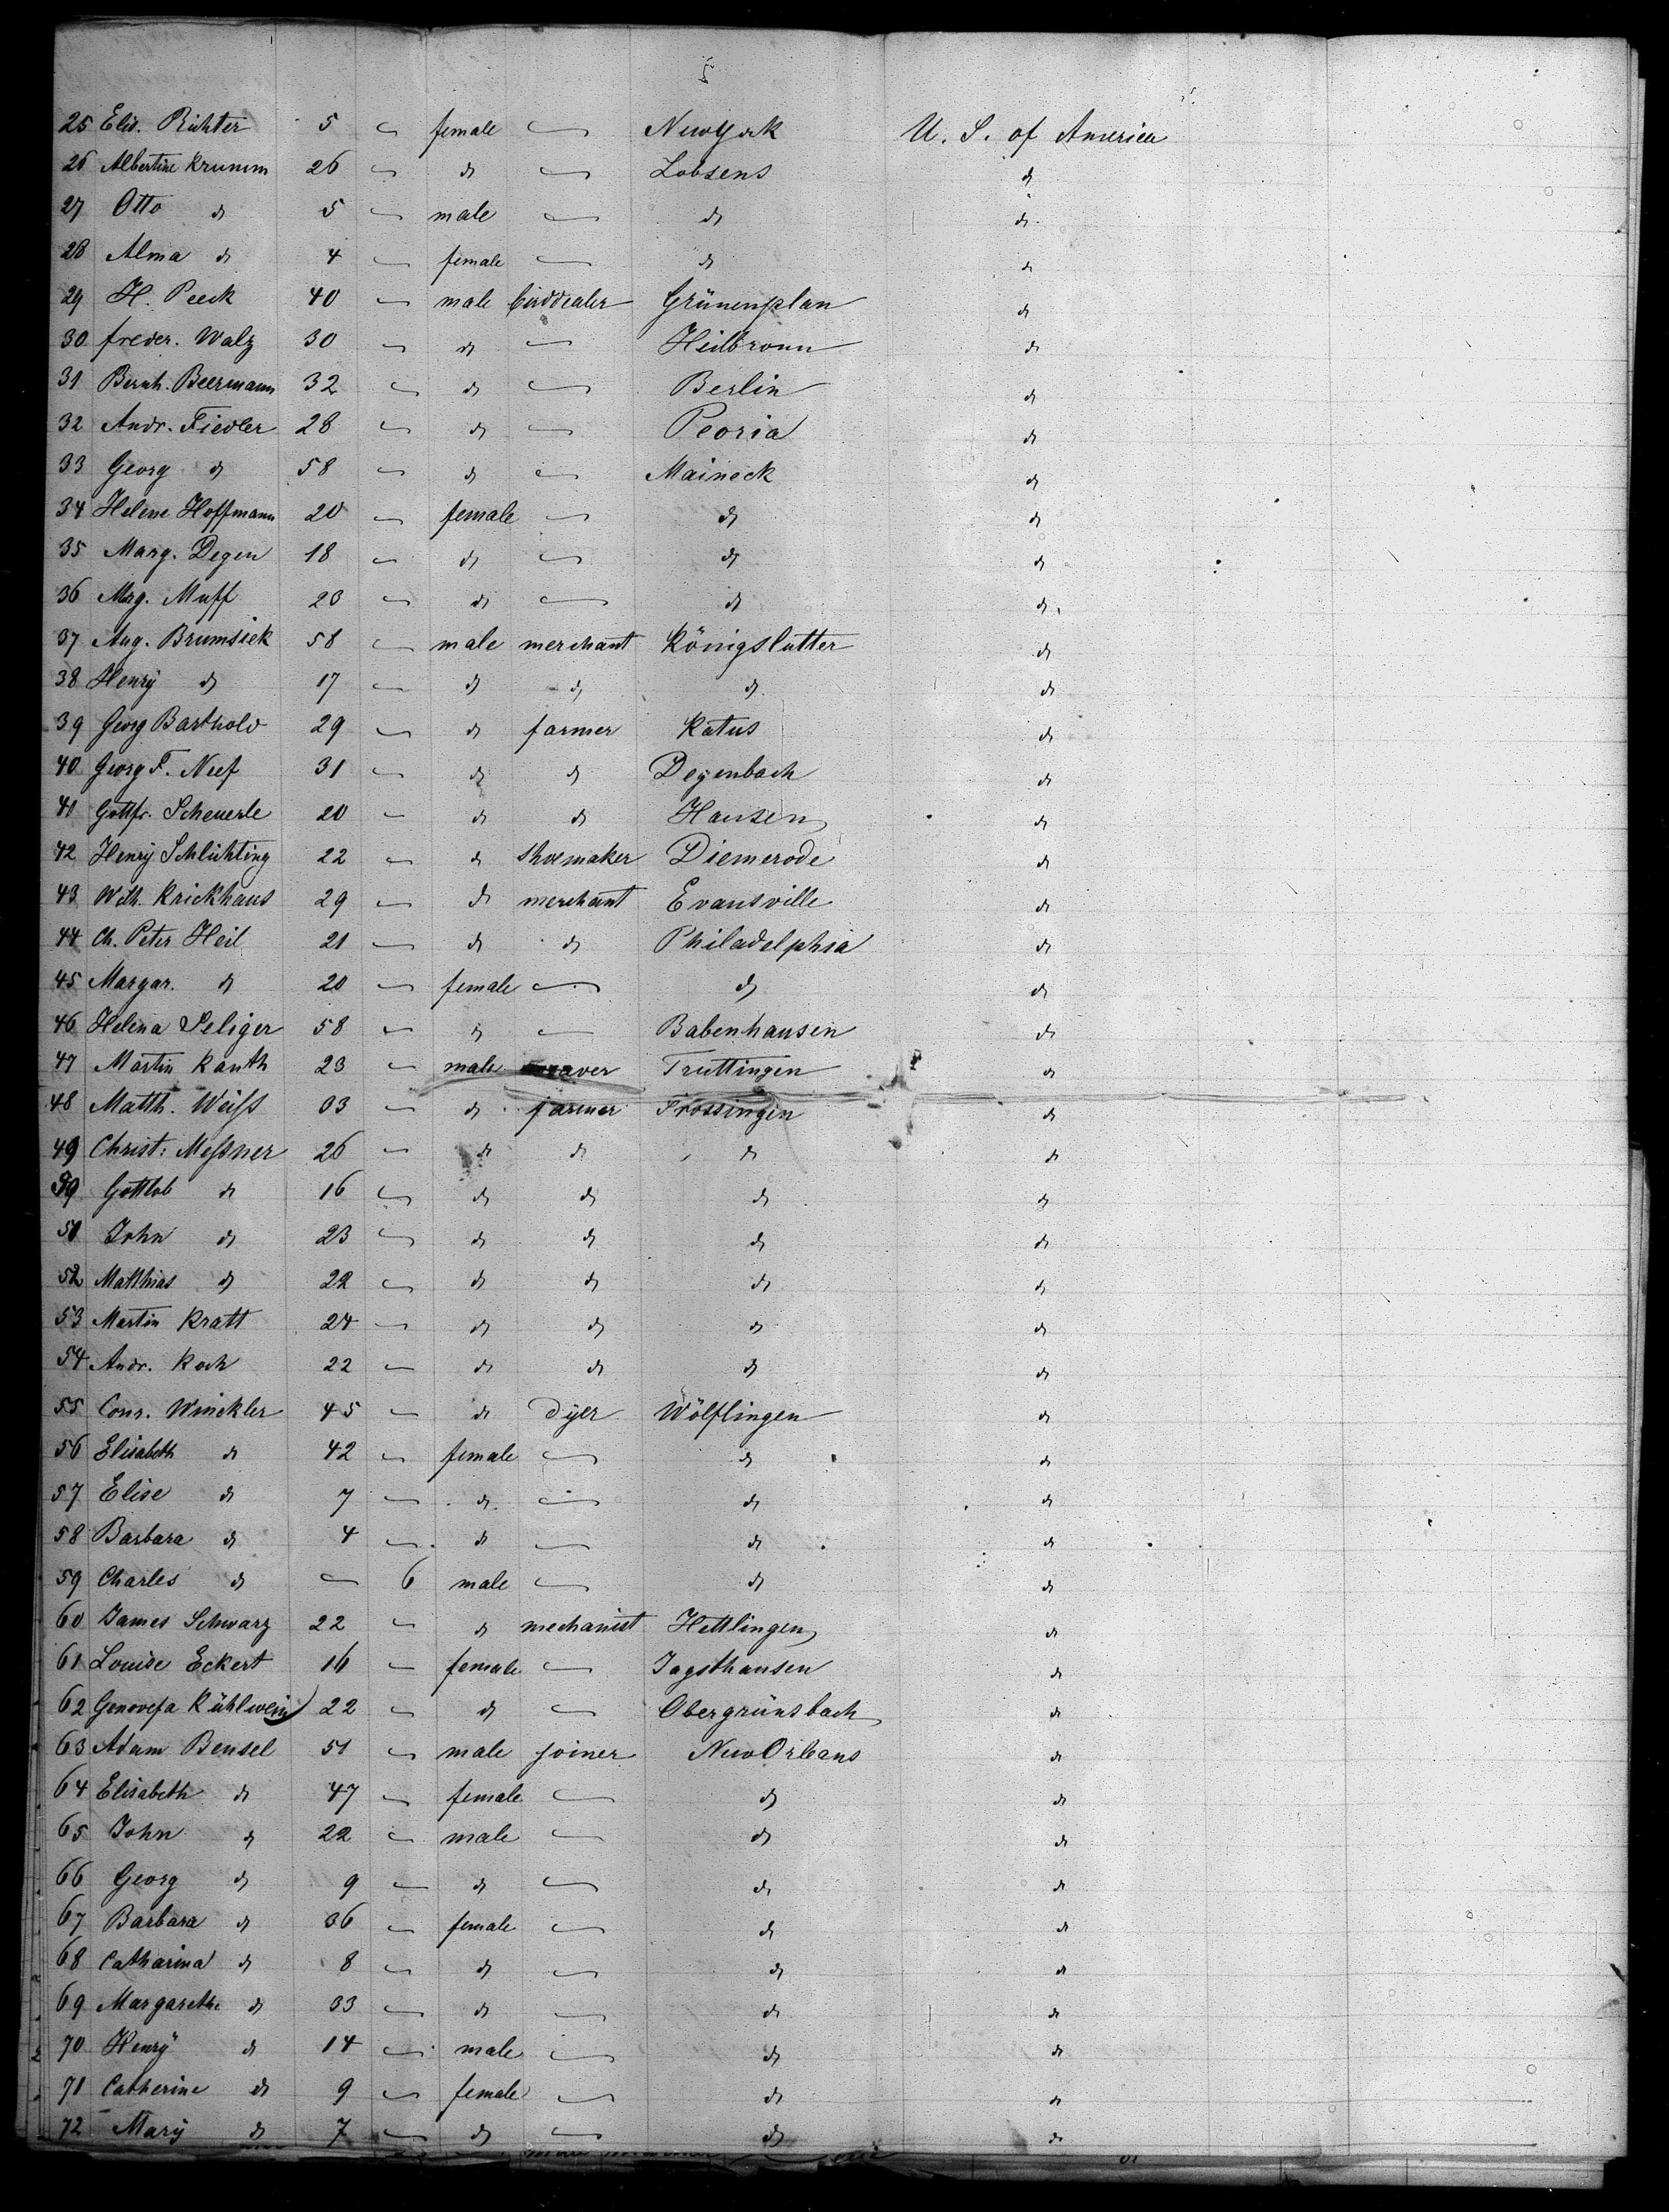 25 Elis. Richter 5 — female — New York U. S. of America
26 Albertine Krumm 26 — do — Lobsens do
27 Otto do 5 — male — do do
28 Alma do 4 — female — do do
29 H. Peeck 40 — male birddealer Grünenplan do
30 Freder. Walz 30 — do — Heilbronn do
31 Bernh. Beermann 32 — do — Berlin do
32 Andr. Fiedler 28 — do — Peoria do
33 Georg do 58 — do — Maineck do
34 Helene Hoffmann 20 — female — do do
35 Marg. Degen 18 — do — do do
36 Mrg. Muff 20 — do — do do
37 Aug. Brumsiek 58 — male merchant Königslutter do
38 Henry do 17 — do do do do
39 Georg Barthold 29 — do farmer Katus do
40 Georg F. Neef 31 — do do Degenbach do
41 Gottfr. Scheuerle 20 — do do Hausen do
42 Henry Schlichting 22 — do shoemaker Diemerode do
43 Wilh. Krickhaus 29 — do merchant Evansville do
44 Ch. Peter Heil 21 — do do Philadelphia do
45 Margar. do 20 — female — do do
46 Helena Seliger 58 — do — Babenhausen do
47 Martin Kauth 23 — male Truttingen do
48 Matth. Weiſs 03 — do farmer Trossingen do
49 Christ: Meſsner 26 — do do do do
Gottlob do 16 — do do do do
John do 23 — do do do do
52 Matthias do 22 — do do do do
53 Martin Kratt 24 — do do do do
54 Andr. Koch 22 — do do do do
55 Conr. Winckler 45 — do dyer Wölflingen do
56 Elisabeth do 42 — female — do do
57 Elise do 7 — do — do do
58 Barbara do 4 — do — do do
59 Charles do — 6 male — do do
60 James Schwarz 22 — do mechanist Hettlingen do
61 Louise Eckert 16 — female — Jagsthausen do
62 Genovefa Kühlwein 22 — do — Obergrünsbach do
63 Adam Bensel 51 — male joiner New Orleans do
64 Elisabeth do 47 — female — do do
65 John do 22 — male — do do
66 Georg do 9 — do — do do
67 Barbara do 36 — female — do do
68 Catharina do 8 — do — do do
69 Margarethe do 33 — do — do do
70 Henry do 14 — male — do do
71 Catherine do 9 — female — do do
72 Mary do 7 — do — do do